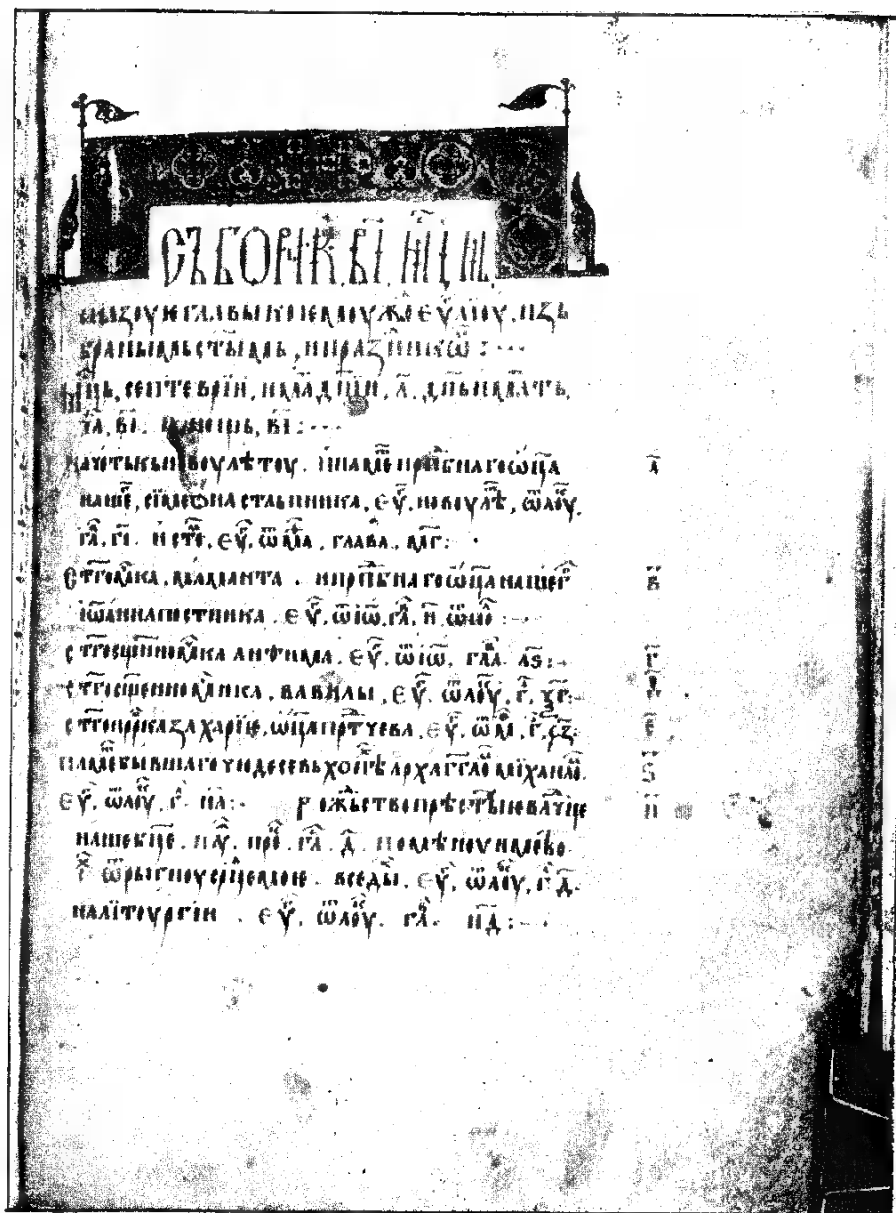 СЪБОРНИ҃К. В҃І. МЦ҃Ъ.
главы коемоуждо еѵ҃лїоу, изъ
браныⷨ стыⷨ, и празⷣникѡⷨ :·
мцⷭ҇ъ, септеврїи, имаⷨ дн҃їи, л҃. дн҃ь иматъ,
ча, в҃і. и нощь, в҃і :·
начетъкъ новоулѣтоу. и памеⷮ прпⷣбнаго ѡц҃а
нашеⷢ, сѷмеѡна стлъпника, еѵⷢ, новоулѣⷮ, ѿ лоуⷦ,
глⷡ, г҃і. и ст҃ⷨоу, еѵⷢ, ѿ маⷴ, глава, мг҃ :
ст҃гомⷱ҇ка, маманта . и прпⷣбнаго ѡц҃а нашегⷪ в҃
іѡанна постника . еѵⷢ, ѿ іѡⷩ, глⷡ, н҃. ѿ поⷧ :·
ст҃госщ҃енномⷱ҇ка анѳима . еѵⷢ. ѿ іѡⷩ, глаⷡ. лѕ҃ :· г҃
ст҃госщ҃енномⷱ҇нка, вавилы, еѵⷢ. ѿ лоуⷦ, гⷧ, ѯг҃ :· д҃
ст҃го прⷪ҇рка захарїю, ѡц҃а прⷣтчева, еѵⷢ, ѿ маⷴ, гⷧ, чз҃. е҃
памеⷮ бывшаго чюдесе въ хонѣⷯ архаг҃глоⷨ михаилоⷨ. ѕ҃
еѵⷢ, ѿ лоуⷦ, гⷧ. на҃ :· рожⷣьство прѣст҃ыѥ влⷣчце и҃
наше бц҃е . на оуⷮ. проⷦ. глⷭ. д҃. помѣноу име твоѥ
гⷭ ѿрыгноу срⷣце мое . вседыⷯ. еѵⷢ, ѿ лоуⷦ, гⷧ д҃.
на лїтоургїи . еѵⷢ, ѿ лоуⷦ. глⷡ. нд҃ :·